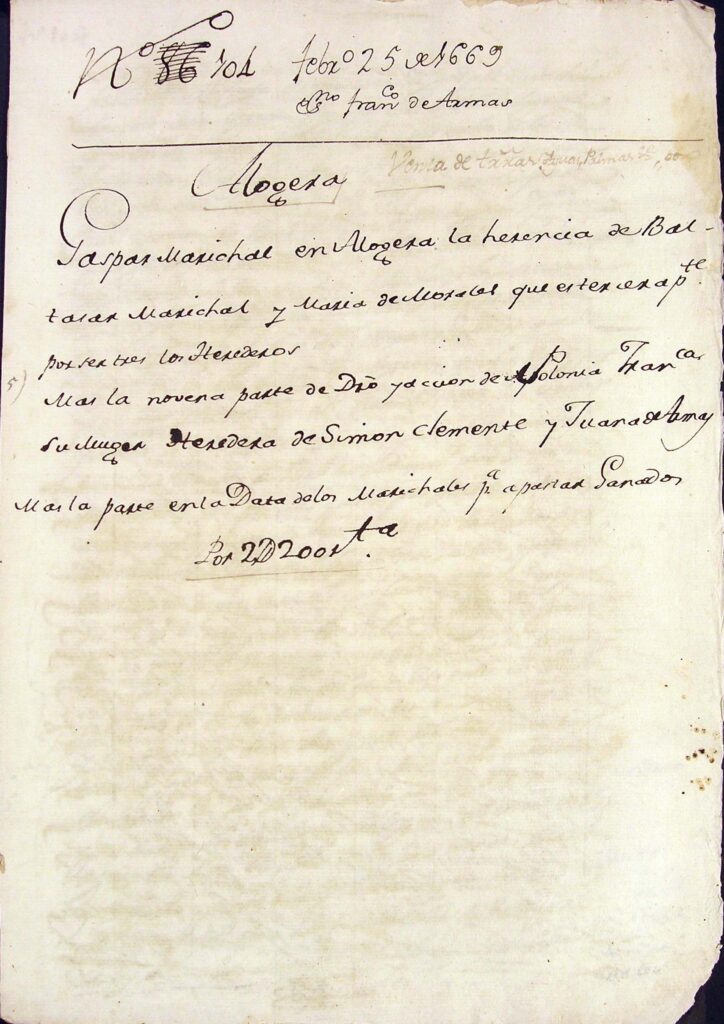 Nº 86 101 febrº 25 de 1669
Essnº franᶜº de Armas
Venta de trras Aguas, Palmas &ª,
Alogera
Gaspar Marichal en Alogera la herencia de Bal-
tasar Marichal y Maria de Morales que es tercera pte.
por ser tres los Herederos
5)
Mas la novena parte de Dro y accion de Apolonia Francas
su Muger Heredera de Simon Clemente y Juana de Armas
Mas la parte en la Data de los Marichales pª apastar Ganados
Por 2D200 rs ta.